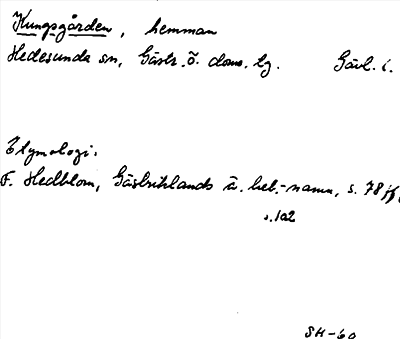 Kungsgården, hemman
Hedesunda sn, Gästr. ö. doms. tg. Gävl. l.
Etymologi:
F. Hedblom, Gästriklands ä. beb.-namn, s. 78 ff,
s. 102
SH-60